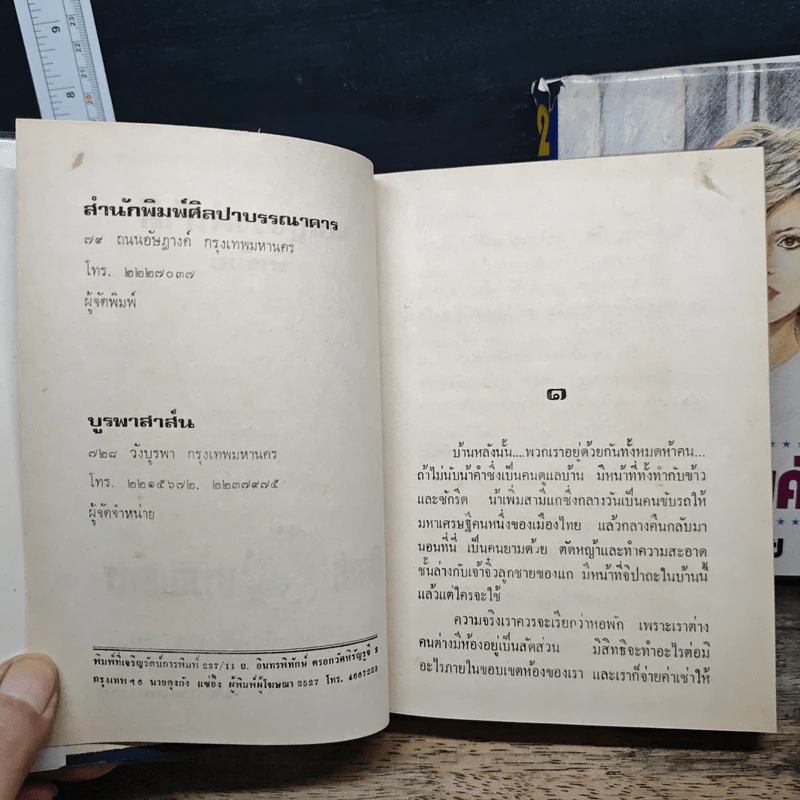 สำนักพิมพ์ศิลปาบรรณาคาร
๗๙ ถนนอัษฎางค์ กรุงเทพมหานคร
โทร. ๒๒๒๗๐๓๗
ผู้จัดพิมพ์
บูรพาสาส์น
๗๒๘ วังบูรพา กรุงเทพมหานคร
โทร. ๒๒๑๕๖๗๒, ๒๒๓๗๙๗๕
ผู้จัดจำหน่าย
พิมพ์ที่เจริญรัตน์การพิมพ์ 237/11 ถ. อินทรพิทักษ์ ตรอกวัดหิรัญรูจี
กรุงเทพ นายกุงกัง แซ่อึง ผู้พิมพ์ผู้โฆษณา 2527 โทร. 4667223
๑
บ้านหลังนั้น....พวกเราอยู่ด้วยกันทั้งหมดห้าคน...
ถ้าไม่นับน้าคำซึ่งเป็นคนดูแลบ้าน มีหน้าที่ทั้งทำกับข้าว
และซักรีด น้าเพิ่มสามีแกซึ่งกลางวันเป็นคนขับรถให้
มหาเศรษฐีคนหนึ่งของเมืองไทย แล้วกลางคืนกลับมา
นอนที่นี่ เป็นคนยามด้วย ตัดหญ้าและทำความสะอาด
ชั้นล่างกับเจ้าจิ๋วลูกชายของแก มีหน้าที่จิปาถะในบ้านนี้
แล้วแต่ใครจะใช้
ความจริงเราควรจะเรียกว่าหอพัก เพราะเราต่าง
คนต่างมีห้องอยู่เป็นสัดส่วน มีสิทธิจะทำอะไรต่อมิ
อะไรภายในขอบเขตห้องของเรา และเราก็จ่ายค่าเช่าให้
2
9
8
23
22
21
20